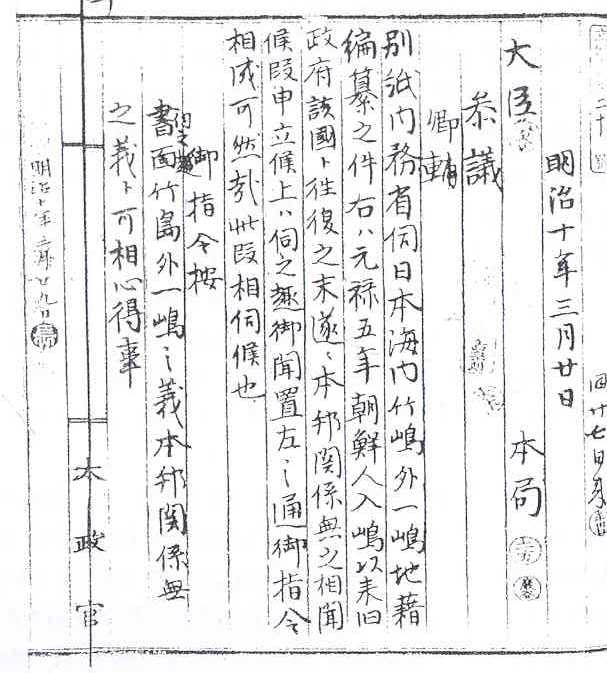 明治十年三月廿日
本局
大臣
参議
卿輔
別紙内務省伺日本海内竹嶋外一嶋地籍
編纂之件右ハ元禄五年朝鮮人入嶋以来旧
政府該國ト往復之末遂ニ本邦関係無之相聞
候段申立候上ハ伺之趣御聞置左之通御指令
相成可然哉此段相伺候也
御指令按
伺之趣
書面竹島外一嶋之義本邦関係無
之義ト可相心得事
明治十年三月廿九日
太政官